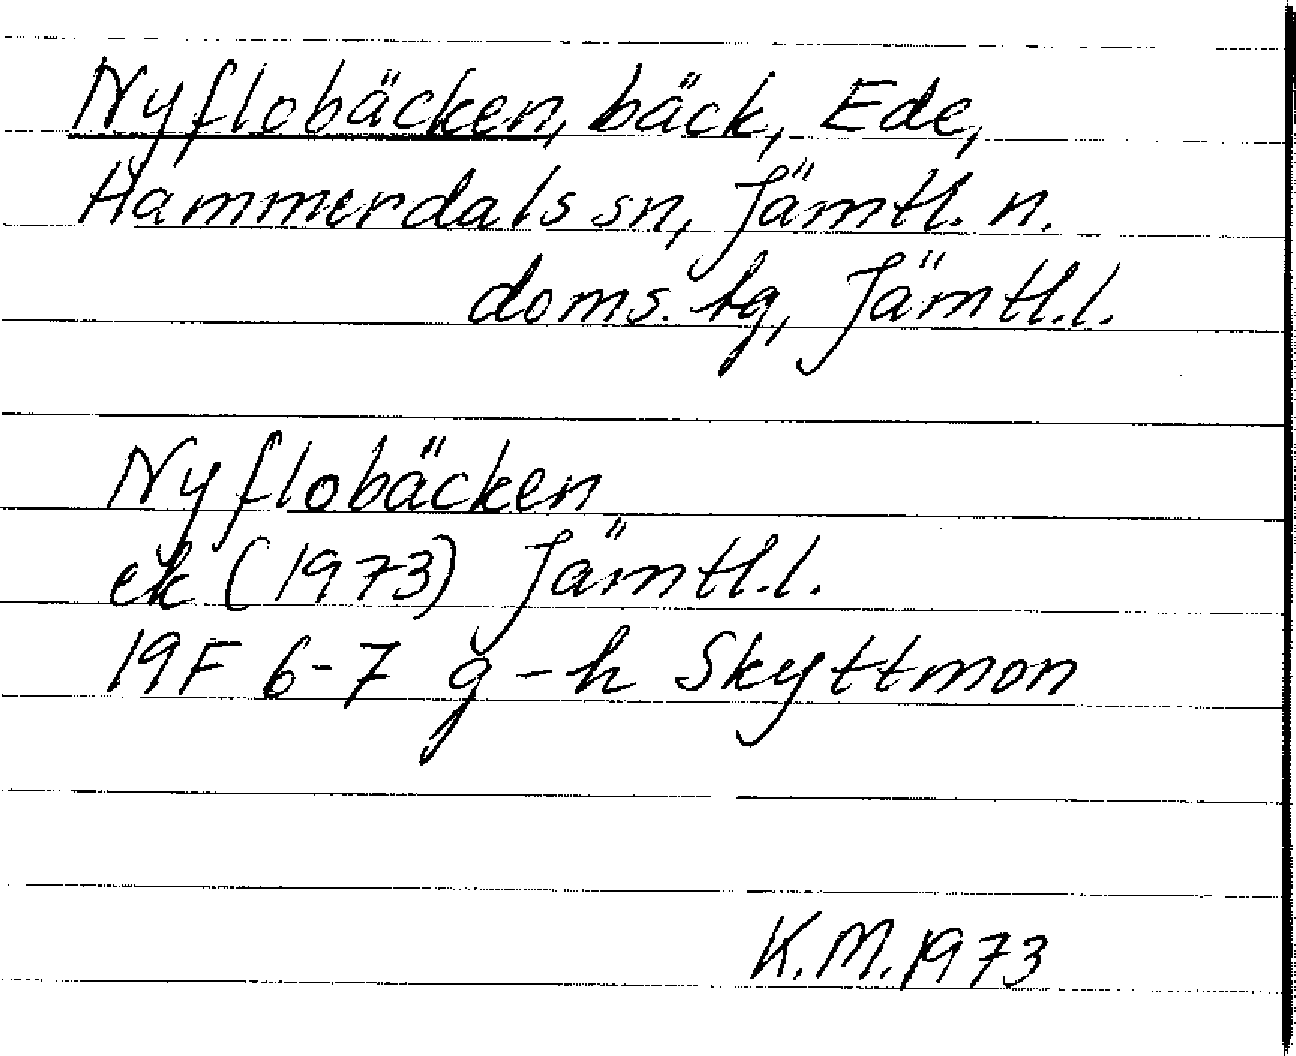 Nyflobäcken, bäck, Ede,
Hammerdals sn, Jämtl. n.
doms. tg, Jämtl.l.
Nyflobäcken
ek (1973) Jämtl.l.
19F 6-7 g-h Skyttmon
K.M.1973